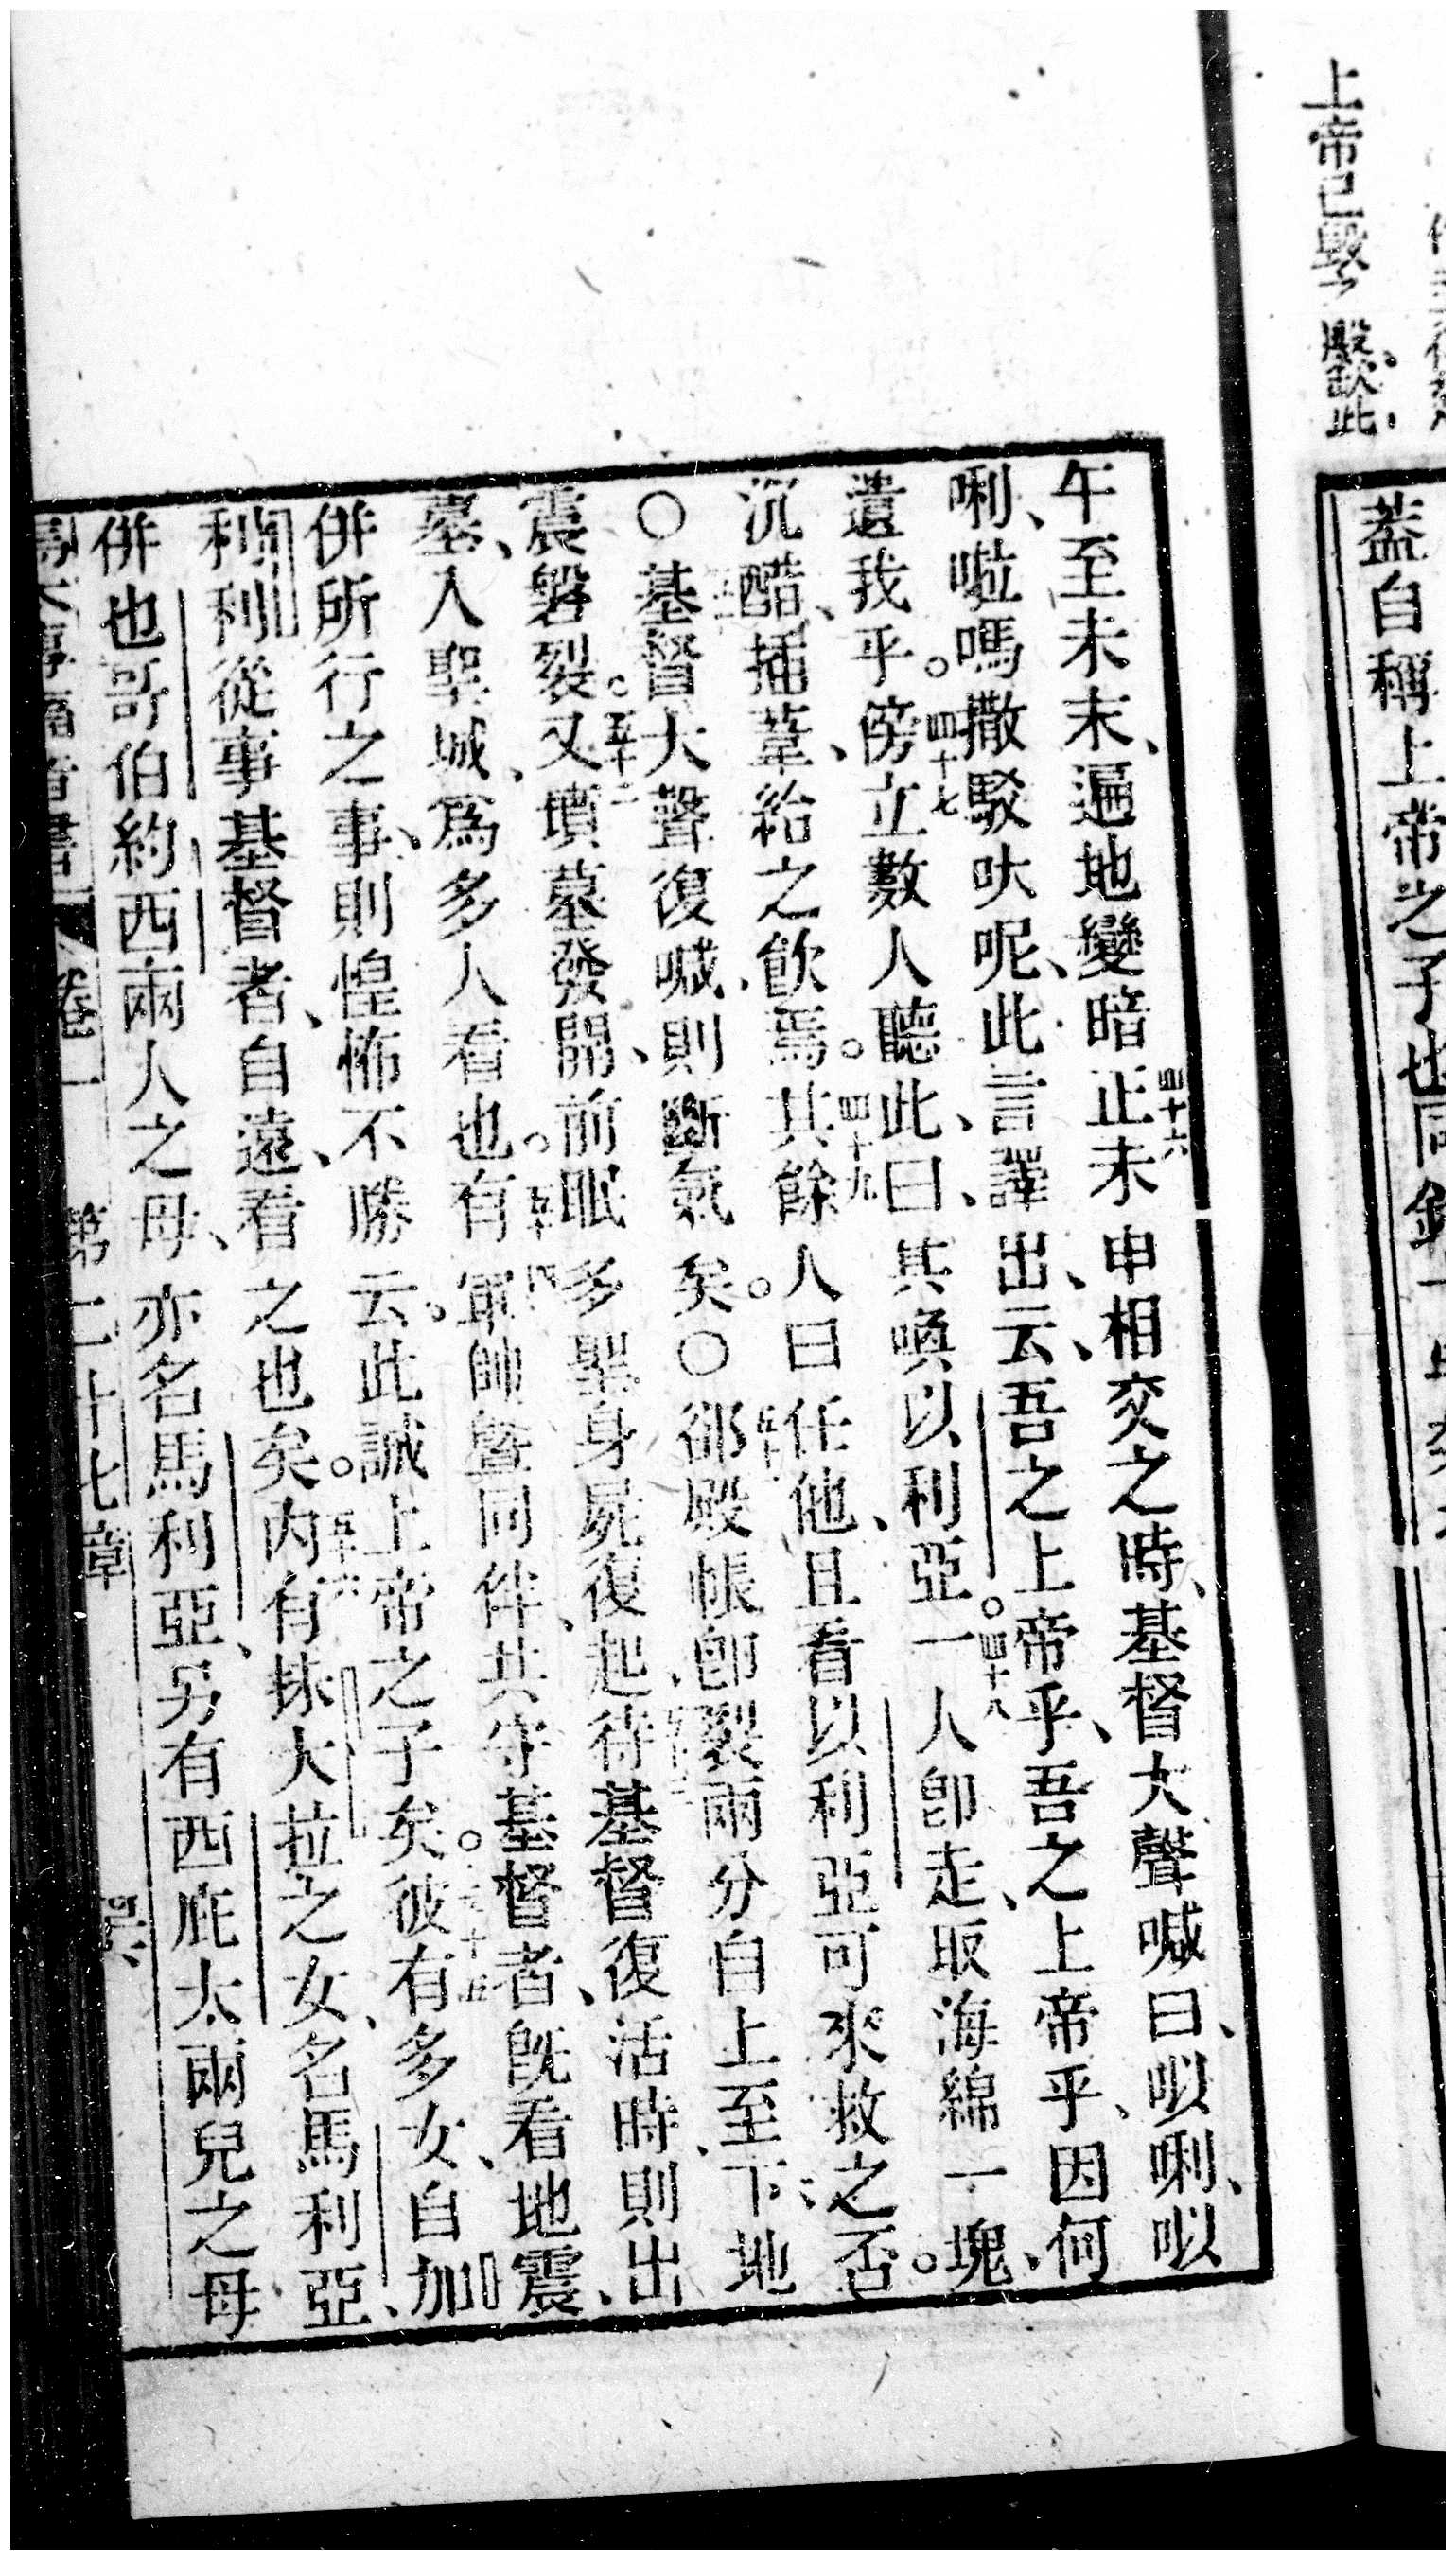 上帝已毀
殿欤此
蓋自稱上帝之子也同釘
午至未末、遍地變暗四十六正未申相交之時、基督大聲喊曰、㕽唎、㕽
唎、啦嗎撒駁呔呢、此言譯出、云、吾之上帝乎、吾之上帝乎、因何
遺我乎。四十七傍立數人聽此、曰、其喚以利亞。四十八一人卽走、取海綿一塊、
沉醋、插葦、給之飲焉。四十九其餘人曰任他、且看以利亞可來救之否。
○五十基督大聲復喊、則斷氣矣。○五十一郤殿帳卽裂兩分自上至下、地
震磐裂。五十二又墳墓發開、前眠多聖身屍復起、五十三待基督復活時、則出
墓、入聖城、爲多人看也。五十四有軍帥曁同伴、共守基督者、旣看地震、
併所行之事、則惶怖不勝云。此誠上帝之子矣。五十五彼有多女、自加
利利從事基督者、自遠、看之也矣。五十六內有抹大拉之女、名馬利亞、
併也哥伯約西兩人之母、亦名馬利亞、另有西庇太兩兒之母
馬天福音書 卷一 第二十七章